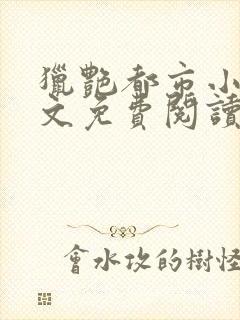 獵艷都市小
文免費閱讀
會水攻的樹怪